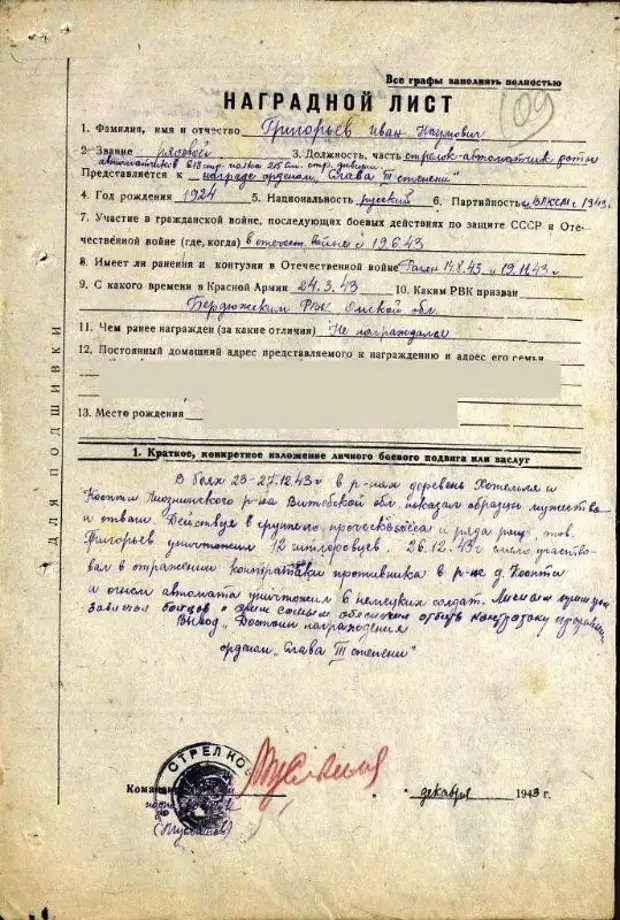 Все графы заполнять полностью
НАГРАДНОЙ ЛИСТ
109
1. Фамилия, имя и отчество Григорьев Иван Наумович
2. Звание рядовой 3. Должность, часть стрелок-автоматчик роты
автоматчиков 618 стр. полка 215 см. стр. дивизии
Представляется к награде орденом „Слава III степени"
4. Год рождения 1924 5. Национальность русский 6. Партийность ВЛКСМ с 1943г
7. Участие в гражданской войне, последующих боевых действиях по защите СССР и Оте-
чественной войне (где, когда) в отечест. войне с 19.6.43
8. Имеет ли ранения и контузии в Отечественной войне Ранен 14.8.43 и 19.11.43 г
9. С какого времени в Красной Армии 24.3.43 10. Каким РВК призван
Бердюжским РВК Омской обл.
11. Чем ранее награжден (за какие отличия) Не награждался
12. Постоянный домашний адрес представляемого к награждению и адрес его семьи
13. Место рождения
ДЛЯ ПОДШИВКИ
1. Краткое, конкретное изложение личного боевого подвига или заслуг
В боях 23-27.12.43г в р-нах деревень и
Копти Лиознинского р-на Витебской обл. показал образцы мужества
и отваги. Действуя в группе и ряда тов.
Григорьев уничтожил 12 гитлеровцев. 26.12.43г смело участво-
вал в отражении контратаки противника в р-не д. Копти
и огнем автомата уничтожил 6 немецких солдат. Личным примером
бойцов и тем самым обеспечил отбить контратаку
Вывод „Достоин награждения
орденом „Слава III степени"
СТРЕЛКОВ
Коман
декабря 1943 г.